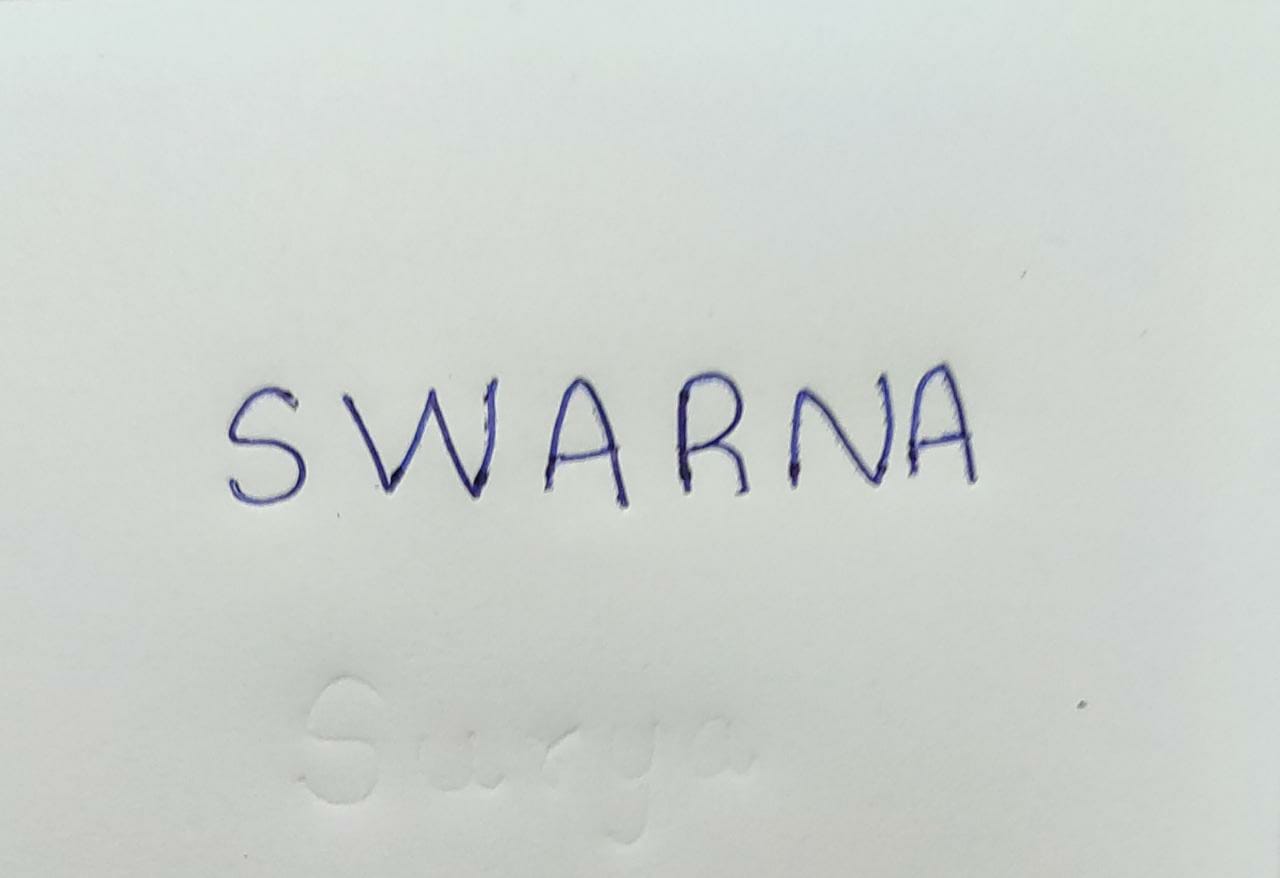 SWARNA
Surya